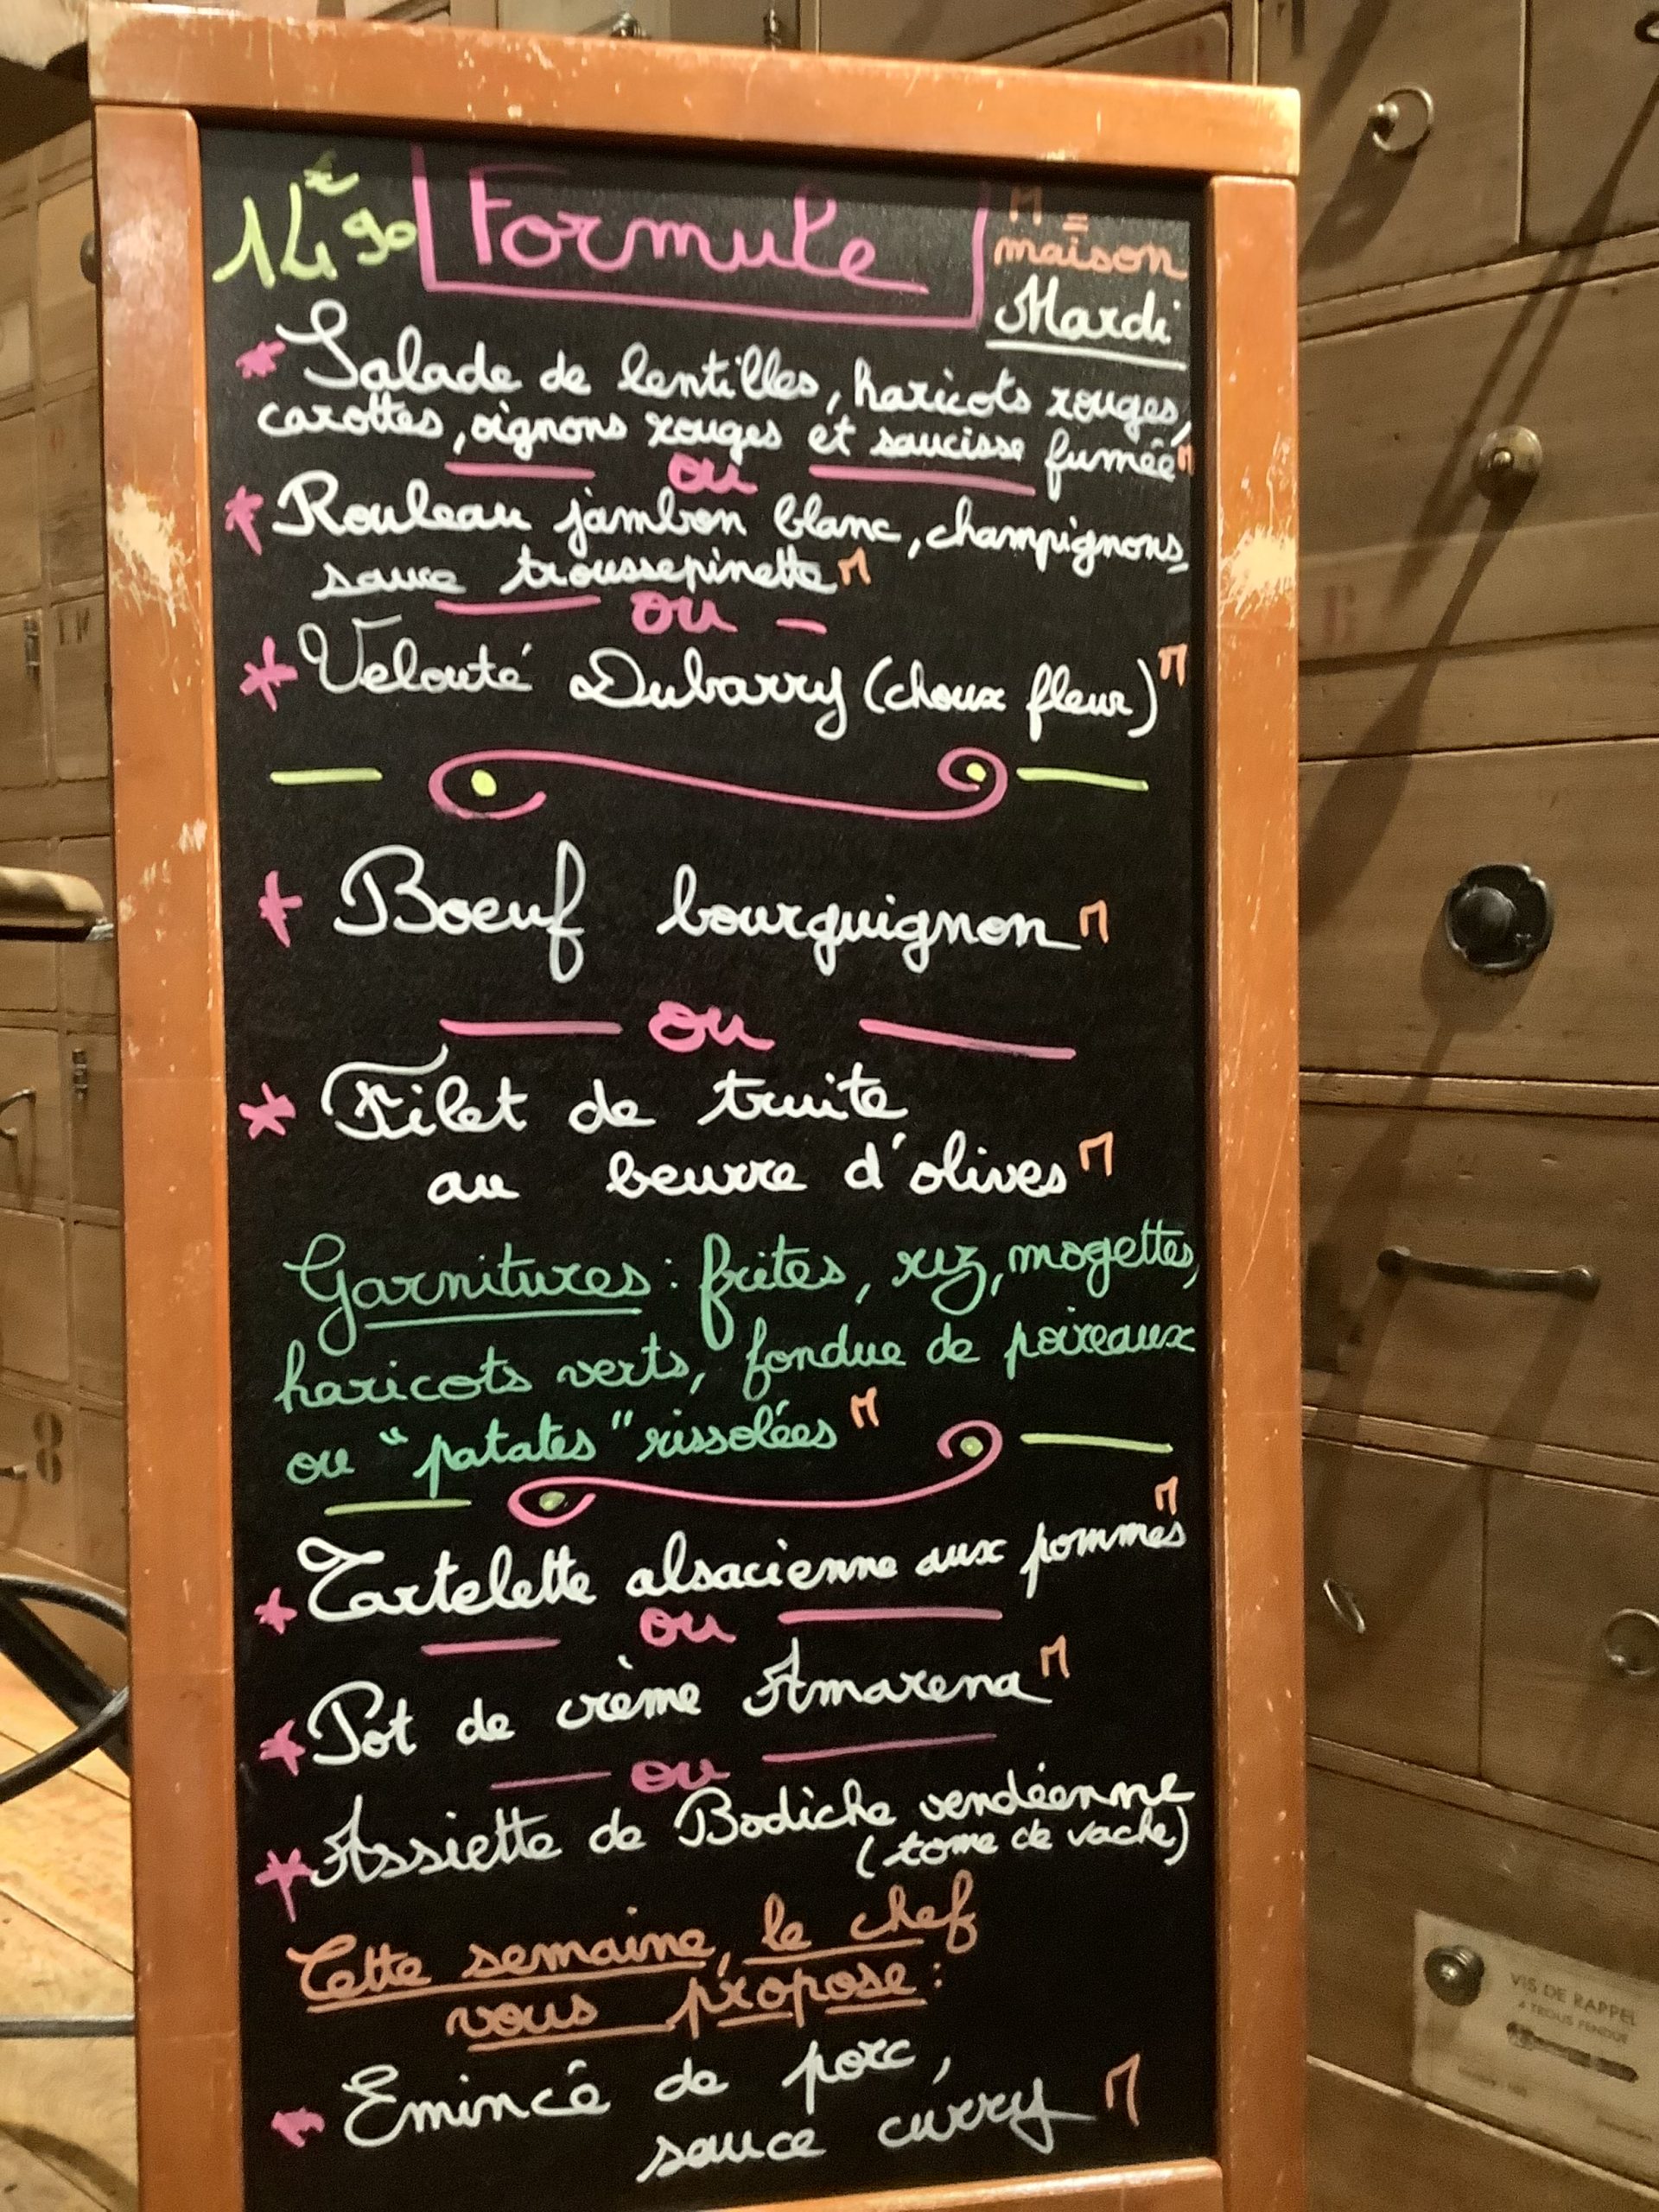 14€90 Formule M = maison
Mardi
* Salade de lentilles, haricots rouges,
carottes, oignons rouges et saucisse fumée M
ou
* Rouleau jambon blanc, champignons,
sauce troussepinette M
ou
* Velouté Dubarry (choux fleur) M
* Boeuf bourguignon M
ou
* Filet de truite
au beurre d'olives M
Garnitures : frites, riz, mogettes,
haricots verts, fondue de poireaux
ou "patates" rissolées M
* Tartelette alsacienne aux pommes M
ou
* Pot de crème Amarena M
ou
* Assiette de Bodiche vendéenne
(tome de vache)
Cette semaine, le chef
vous propose :
* Emincé de porc,
sauce curry M
8
VIS DE RAPPEL